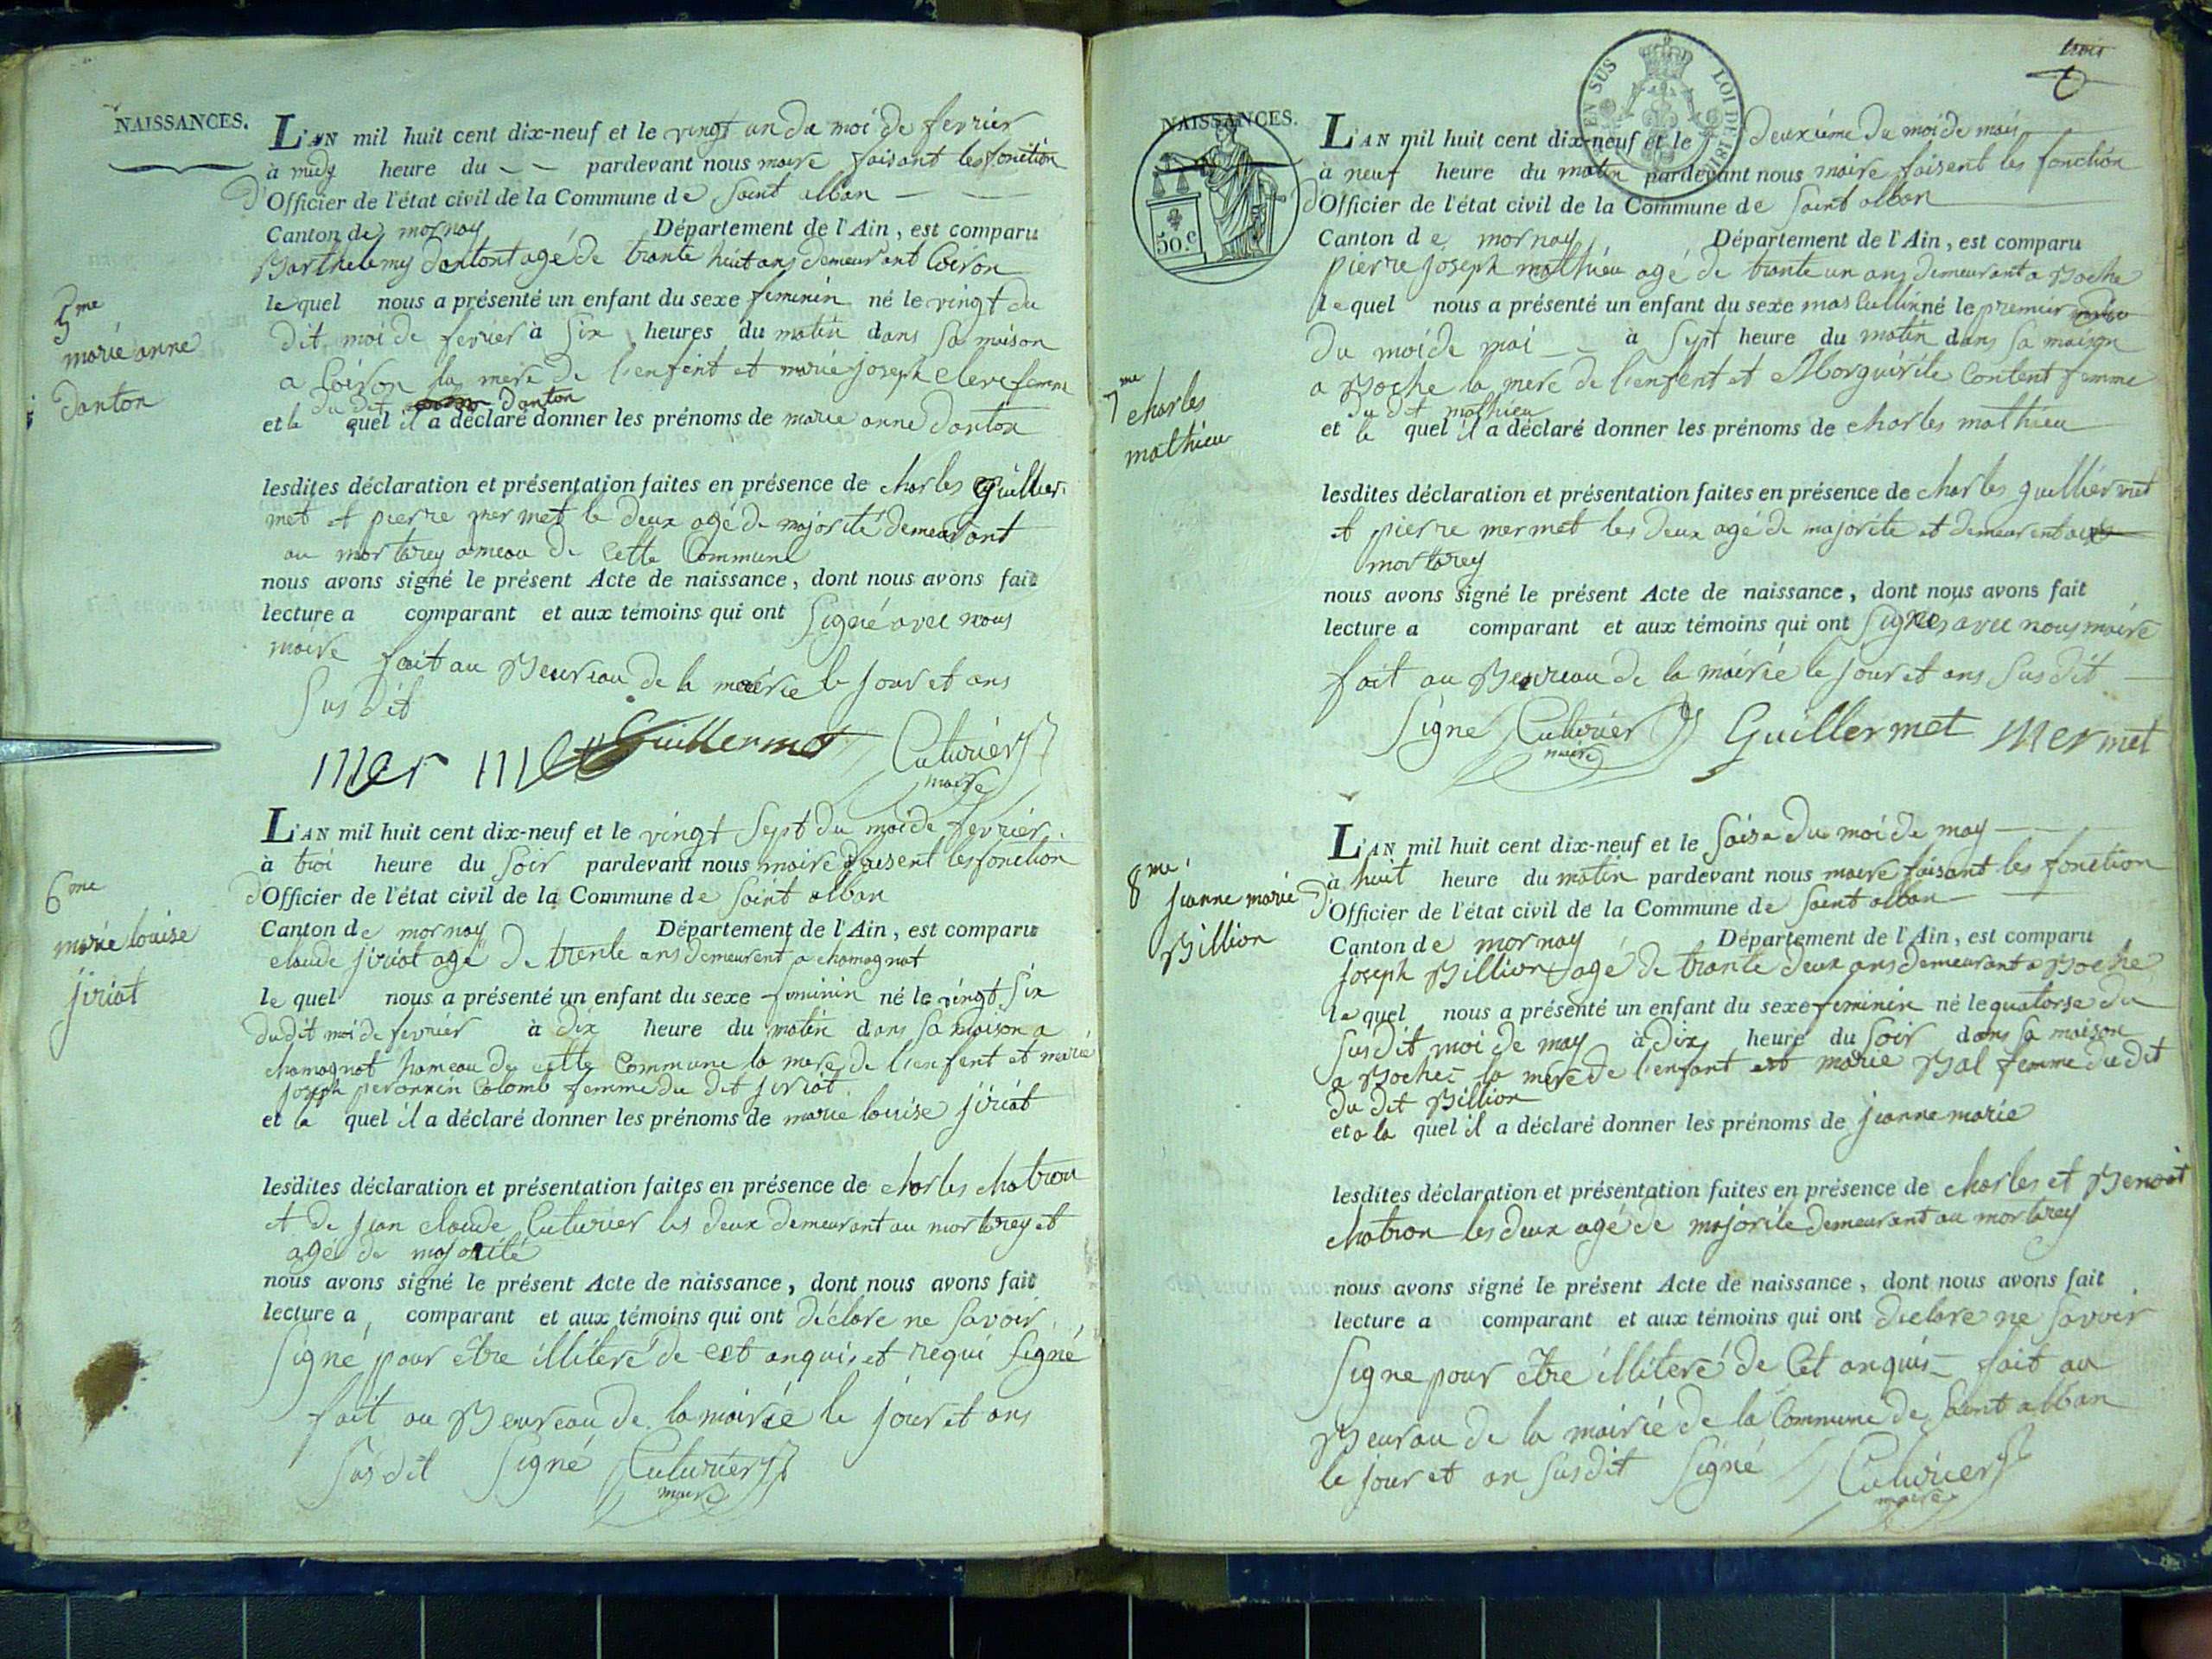 NAISSANCES.
5me
marie anne
danton
L'AN mil huit cent dix-neuf et le vingt un du moi de fevrier
à midy heure du - - pardevant nous maire faisant les fonction
d'Officier de l'état civil de la Commune de saint alban
Canton de mornay Département de l'Ain, est comparu
Barthelemy danton agé de trante huit ans demeurant Coiron
le quel nous a présenté un enfant du sexe feminin né le vingt du
dit moi de fevrier à six heures du matin dans sa maison
a Coiron la mere de l'enfent et marie joseph clerc femme
du dit danton
et la quel il a déclaré donner les prénoms de marie anne danton
lesdites déclaration et présentation faites en présence de charles Guiller
met et pierre mermet le deux agé de majorité demeurant
au mortarey ameau de cette Commune
nous avons signé le présent Acte de naissance, dont nous avons fait
lecture a comparant et aux témoins qui ont signé avec nous
maire fait au Beureau de la mairie le jour et ans
susdit
mermet Guillermet Cuturier
maire
6me
marie louise
jiriat
L'AN mil huit cent dix-neuf et le vingt sept du moi de fevrier
à troi heure du soir pardevant nous maire faisent les fonction
d'Officier de l'état civil de la Commune de saint alban
Canton de mornay Département de l'Ain, est comparu
claude jiriat agé de trente ans demeurent a chamagnat
le quel nous a présenté un enfant du sexe feminin né le vingt six
dudit moi de fevrier à dix heure du matin dans sa maison a
chamagnat hameau de cette Commune la mere de l'enfent et marie
joseph peronnin Colomb femme du dit jiriat
et la quel il a déclaré donner les prénoms de marie louise jiriat
lesdites déclaration et présentation faites en présence de charles chatron
et de jean claude Cuturier les deux demeurant au mortarey et
agé de majorité
nous avons signé le présent Acte de naissance, dont nous avons fait
lecture a comparant et aux témoins qui ont déclare ne savoir
signé pour être illiteré de cet anquis et requi signé
fait au Beureau de la mairie le jour et ans
susdit signé Cuturier
maire
trois
EN SUS LOI DE 181
NAISSANCES.
50.c
7me charles
mathieu
L'AN mil huit cent dix-neuf et le deuxiéme du moi de mai
à neuf heure du matin pardevant nous maire faisent les fonction
d'Officier de l'état civil de la Commune de saint alban
Canton de mornay Département de l'Ain, est comparu
pierre joseph mathieu agé de trante un ans demeurant a Boche
le quel nous a présenté un enfant du sexe mascullin né le premier
du moi de mai à sept heure du matin dans sa maison
a Boche la mere de l'enfent et Morguirite Content femme
du dit mathieu
et le quel il a déclaré donner les prénoms de charles mathieu
lesdites déclaration et présentation faites en présence de charles guillermet
et pierre mermet les deux agé de majorite et demeurent au
mortarey
nous avons signé le présent Acte de naissance, dont nous avons fait
lecture a comparant et aux témoins qui ont signes avec nous maire
fait au Beureau de la mairie le jour et ans susdit
signe Cuturier Guillermet mermet
maire
8me jeanne marie
Billion
L'AN mil huit cent dix-neuf et le saise du moi de may
à huit heure du matin pardevant nous maire faisant les fonction
d'Officier de l'état civil de la Commune de saint alban
Canton de mornay Département de l'Ain, est comparu
joseph Billion agé de trante deux ans demeurant a Boche
le quel nous a présenté un enfant du sexe feminin né le quatorse du
susdit moi de may à dix heure du soir dans sa maison
a Boche la mere de l'enfant est marie Bal femme du dit
du dit Billion
et a la quel il a déclaré donner les prénoms de jeanne marie
lesdites déclaration et présentation faites en présence de charles et Benoit
chatron les deux agé de majorite demeurant au mortarey
nous avons signé le présent Acte de naissance, dont nous avons fait
lecture a comparant et aux témoins qui ont declare ne savoir
signe pour être illiteré de cet anquis fait au
Beurau de la mairie de la Commune de saint alban
le jour et an susdit signé Cuturier
maire